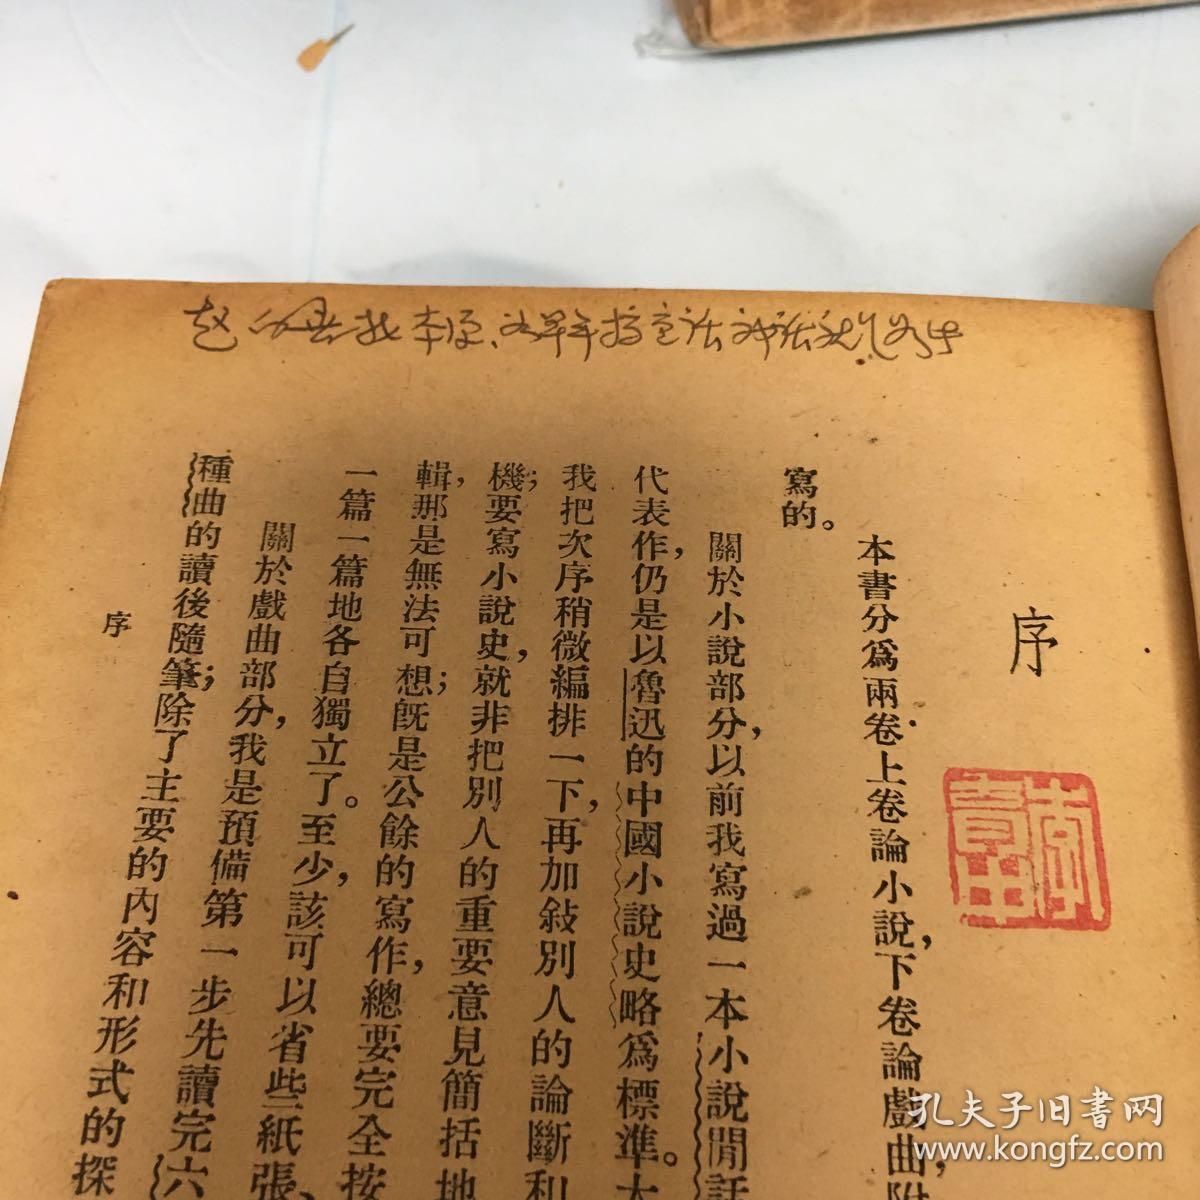 序
本書分爲兩卷上卷論小說，下卷論戲曲，附
寫的。
關於小說部分，以前我寫過一本小說閒話
代表作，仍是以魯迅的中國小說史略爲標準。大
我把次序稍微編排一下，再加敍別人的論斷和
機；要寫小說史，就非把別人的重要意見簡括地
輯，那是無法可想；旣是公餘的寫作，總要完全按
一篇一篇地各自獨立了。至少，該可以省些紙張、
關於戲曲部分，我是預備第一步先讀完六
種曲的讀後隨筆；除了主要的內容和形式的探
序
孔夫子旧书网
www.kongfz.com